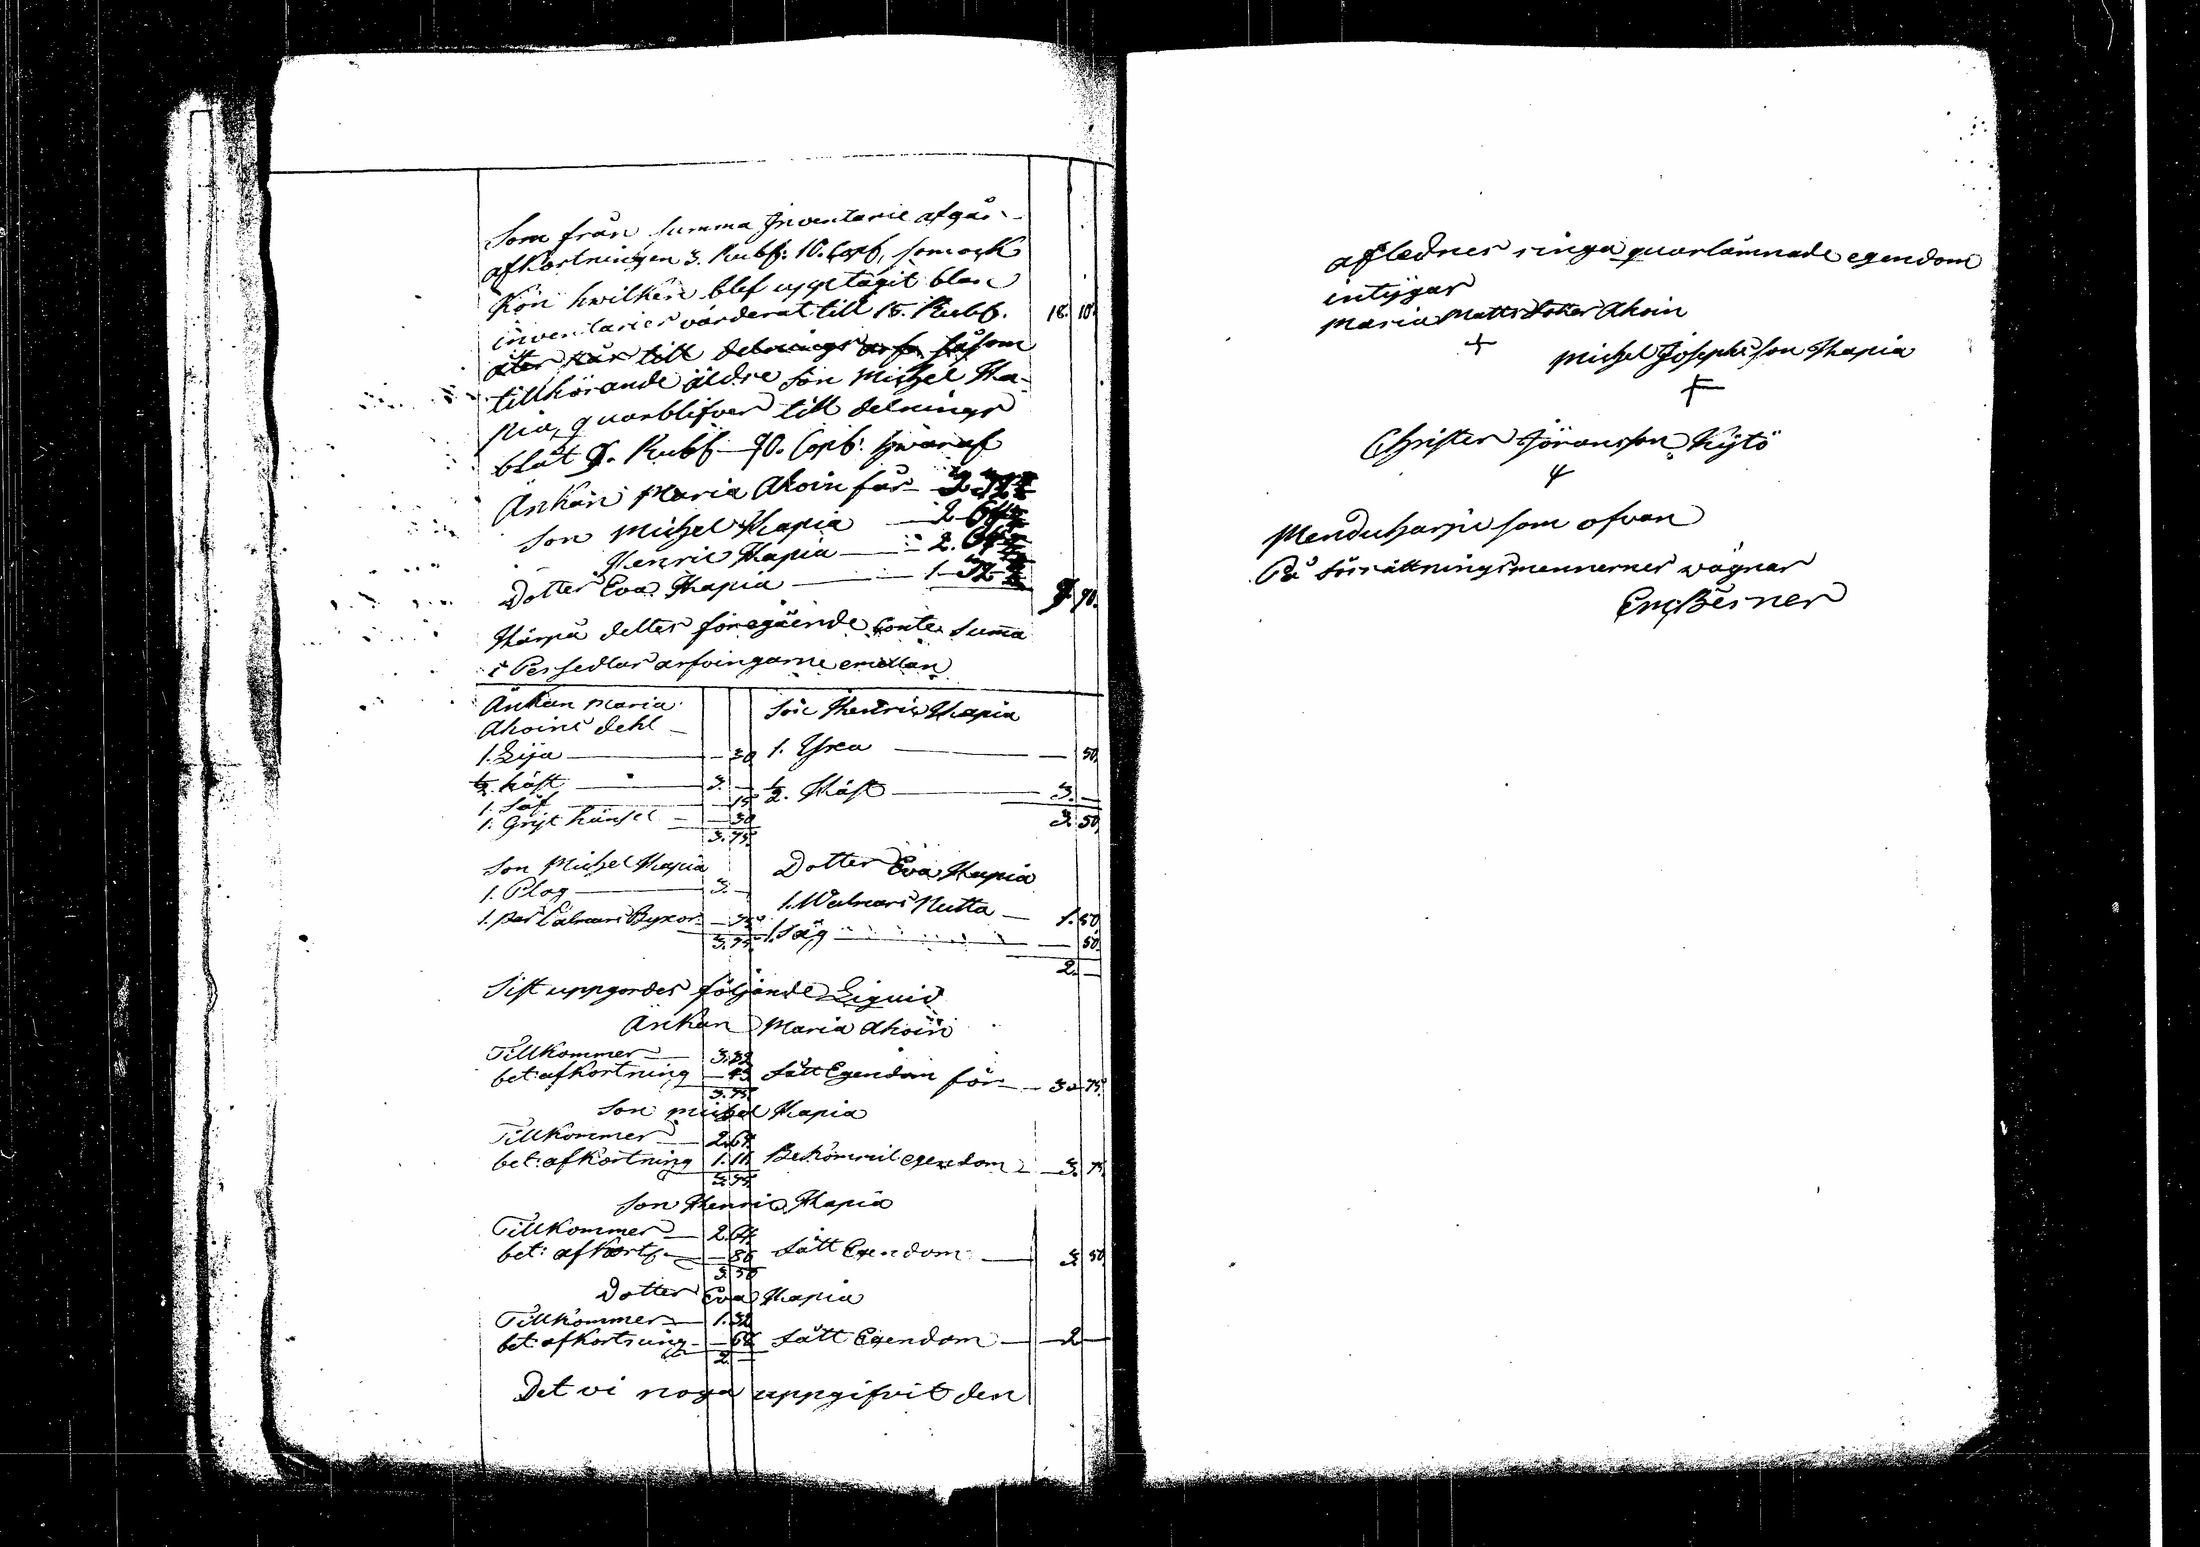 Som från Summa Inventarie afgår
afkortningen 3. Rubf: 10. Cop:, som ock
Kon hwilken blef upptagit blan
inventarier värderat till 15. Rubf. 18. 10.
åter går till delnings såsom
tillhörande äldre Son Michel Ha-
pia, quarblifver till delnings
blåt 9. Rubf 90. Cop: hwaraf
Änkan Maria Ahoin får 3.
Son Michel Hapia 2. 64
Henric Hapia 2. 64
Dotter Eva Hapia 1. 32
9 90.
Härpå deltes föregående Conte Summa
i Persedlar arfvingarne emellan
Änkan Maria
Ahoins dehl
1. Lija 30
1/2 häst 3. —
1. Såf 15
1. Gryt hänsel 30
3. 75.
Son Henric Hapia
1. Yxa 50.
1/2. Häst 3. —
3. 50.
Son Michel Hapia
1. Plog 3. —
1. par Valmars Byxor 75.
3. 75.
Dotter Eva Hapia
1. Walmars Mutta 1. 50
1. Såg 50.
2. —
Sist uppgordes följande Liquid
Änkan Maria Ahoin
Tillkommer 3. 32
bet: afkortning 43 Fått Egendom för 3. 75.
3. 75.
Son Michel Hapia
Tillkommer 2. 64.
bet: afkortning 1. 11. Bekommit egendom 3. 75.
3. 75.
Son Henric Hapia
Tillkommer 2. 64.
bet: afkort: 86 Fått Egendom 3. 50
3. 50
Dotter Eva Hapia
Tillkommer 1. 32
bet: afkortning 68 Fått Egendom 2 —
2. —
Det vi noga uppgifvit den
aflednes ringa quarlämnade egendom
intygar
Maria Matts Dotter Ahoin
+
Michel Josephs son Hapia
+
Christer Göransson Kytö
4
Menduharju som ofvan
På Förrättningsmennernes wägnar
Em: Besner